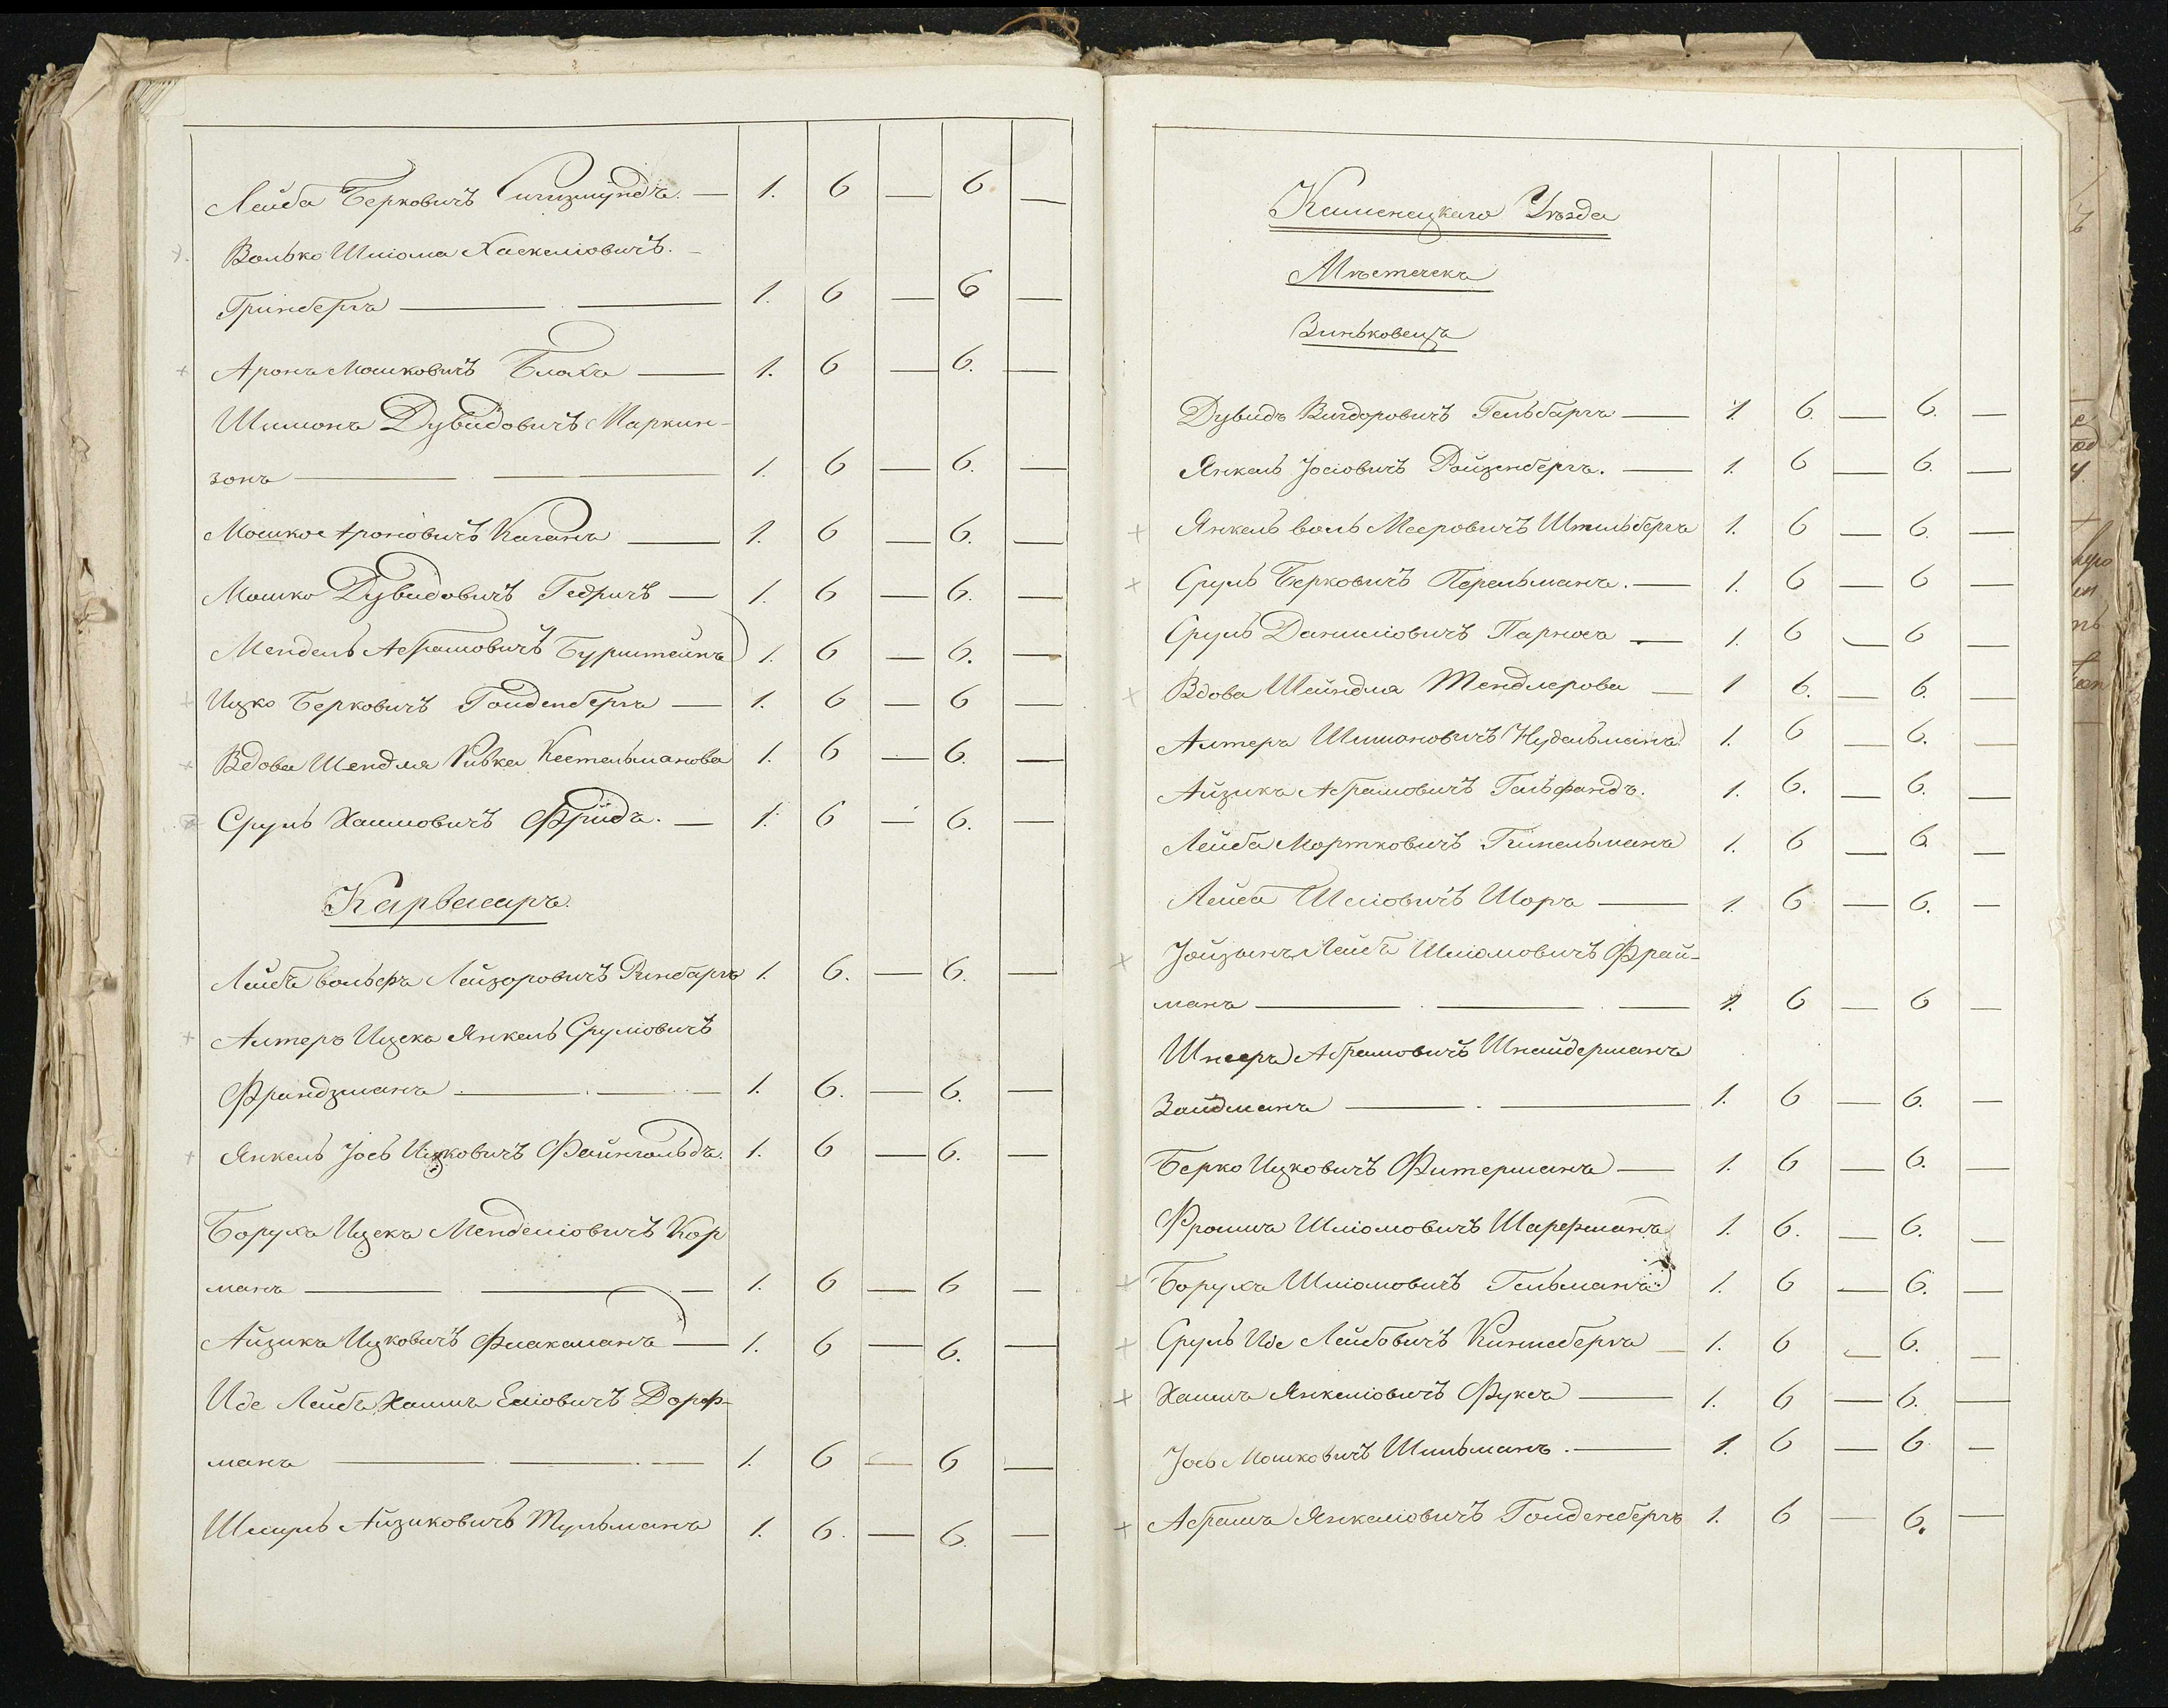 Лейба Берковичъ Сигизмундъ. — 1. 6 — 6. —
Волько Шліома Хаскеліовичъ. —
Гринбергъ — — 1. 6 — 6 —
Аронъ Мошковичъ Блахъ — 1. 6 — 6. —
Шимонъ Дувидовичъ Маркин-
зонъ — — — 1. 6 — 6. —
Мошко Ароновичъ Каганъ — 1. 6 — 6. —
Мошко Дувидовичъ Гедричъ — 1. 6 — 6. —
Мендель Абрамовичъ Бурштейнъ 1. 6 — 6. —
Ицко Берковичъ Голденбергъ — 1. 6 — 6 —
Вдова Шендля Ривка Кестельманова 1. 6 — 6. —
Сруль Хаимовичъ Фридъ. — 1. 6 — 6. —
Карвасаръ.
Лейбъ Вольфъ Лейзоровичъ Ринбаргъ 1. 6. — 6. —
Алтеръ Ицекъ Янкель Cруліовичъ
Франдзманъ — — — 1. 6. — 6. —
Янкель Іось Ицковичъ Файнгольдъ. 1. 6 — 6. —
Борухъ Ицекъ Менделіовичъ Кор
манъ — — — 1. 6 — 6 —
Айзикъ Ицковичъ Флаксманъ — 1. 6 — 6. —
Иде Лейбъ Хаимъ Еліовичъ Дорф-
манъ — — — 1. 6 — 6 —
Шмуль Айзиковичъ Тульманъ 1. 6. — 6. —
Каменецкаго Уѣзда
Мѣстечекъ
Виньковецъ
Дувидъ Вигдоровичъ Гельбаргъ — 1 6. — 6. —
Янкель Іосіовичъ Ройзенбергъ. — 1. 6 — 6. —
Янкель Воль Мееровичъ Штильбергъ 1. 6 — 6. —
Сруль Берковичъ Перельманъ. — 1. 6 — 6 —
Сруль Даниліовичъ Парносъ — 1. 6 — 6 —
Вдова Шейндля Тендлерова — 1 6. — 6. —
Алтеръ Шимоновичъ Нудельманъ 1. 6 — 6. —
Айзикъ Абрамовичъ Гельфандъ. 1. 6. — 6. —
Лейба Мортковичъ Гипельманъ 1. 6 — 6 —
Лейба Шліовичъ Шоръ — 1. 6 — 6. —
Лейбъ Шліомовичъ Фрай-
манъ — — — 1. 6 — 6 —
Шнееръ Абрамовичъ Шнайдерманъ
Зайдманъ — — 1. 6 — 6. —
Берко Ицковичъ Фитерманъ — 1. 6 — 6. —
Фроимъ Шліомовичъ Шарфманъ 1. 6. — 6. —
Борухъ Шліомовичъ Гельманъ 1. 6 — 6. —
Сруль Иде Лейбовичъ Киншбергъ — 1. 6 — 6. —
Хаимъ Янкеліовичъ Фуксъ — 1. 6 — 6. —
Іось Мошковичъ Шильманъ. — 1. 6 — 6 —
Абрамъ Янкеліовичъ Голденбергъ 1. 6 — 6. —